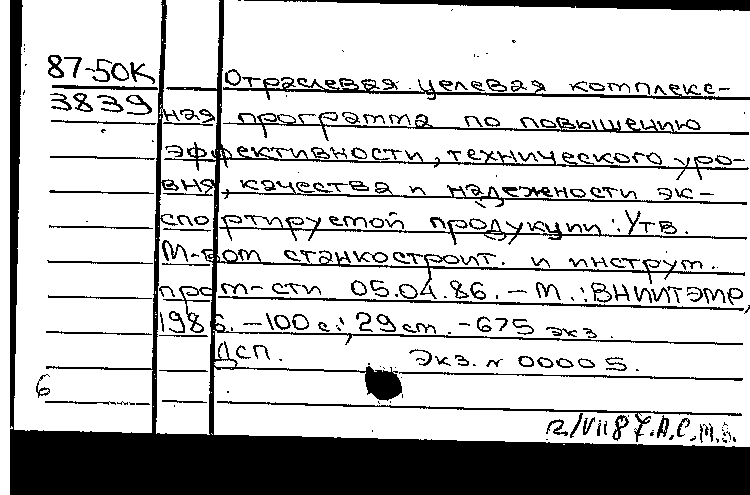 87-50К
3839
Отраслевая целевая комплекс-
ная программа по повышению
эффективности, технического уро-
вня, качества и надежности эк-
спортируемой продукции: Утв.
М-вом станкостроит. и инструм.
пром-сти 05.04.86. – М.: ВНИИТЭМР,
1986. – 100 с.; 29 см. - 675 экз.
Дсп. Экз. N 00005.
6